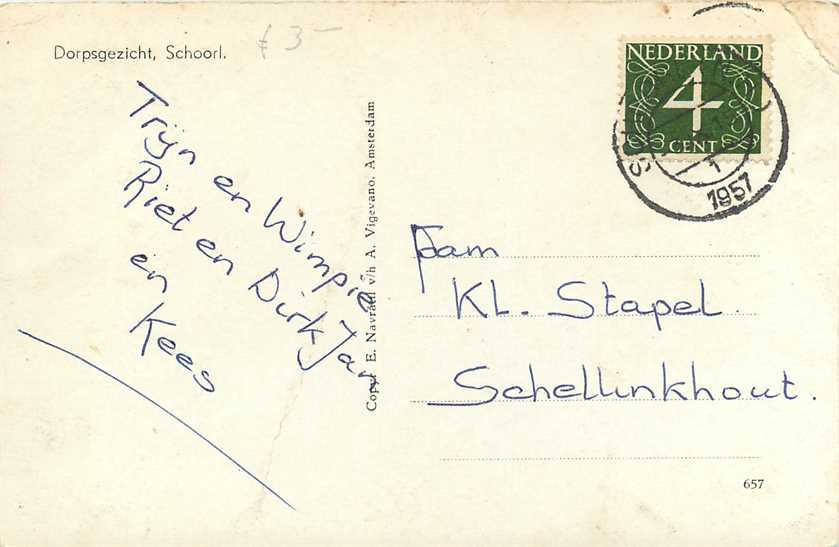 Dorpsgezicht, Schoorl.
f 3-
NEDERLAND
4
CENT
1
1957
Trijn en Wimpie
Riet en Dirk Jan
en
Kees
Copyr E. Navratil v/h A. Vigevano, Amsterdam
Fam
Kl. Stapel.
Schellinkhout.
657